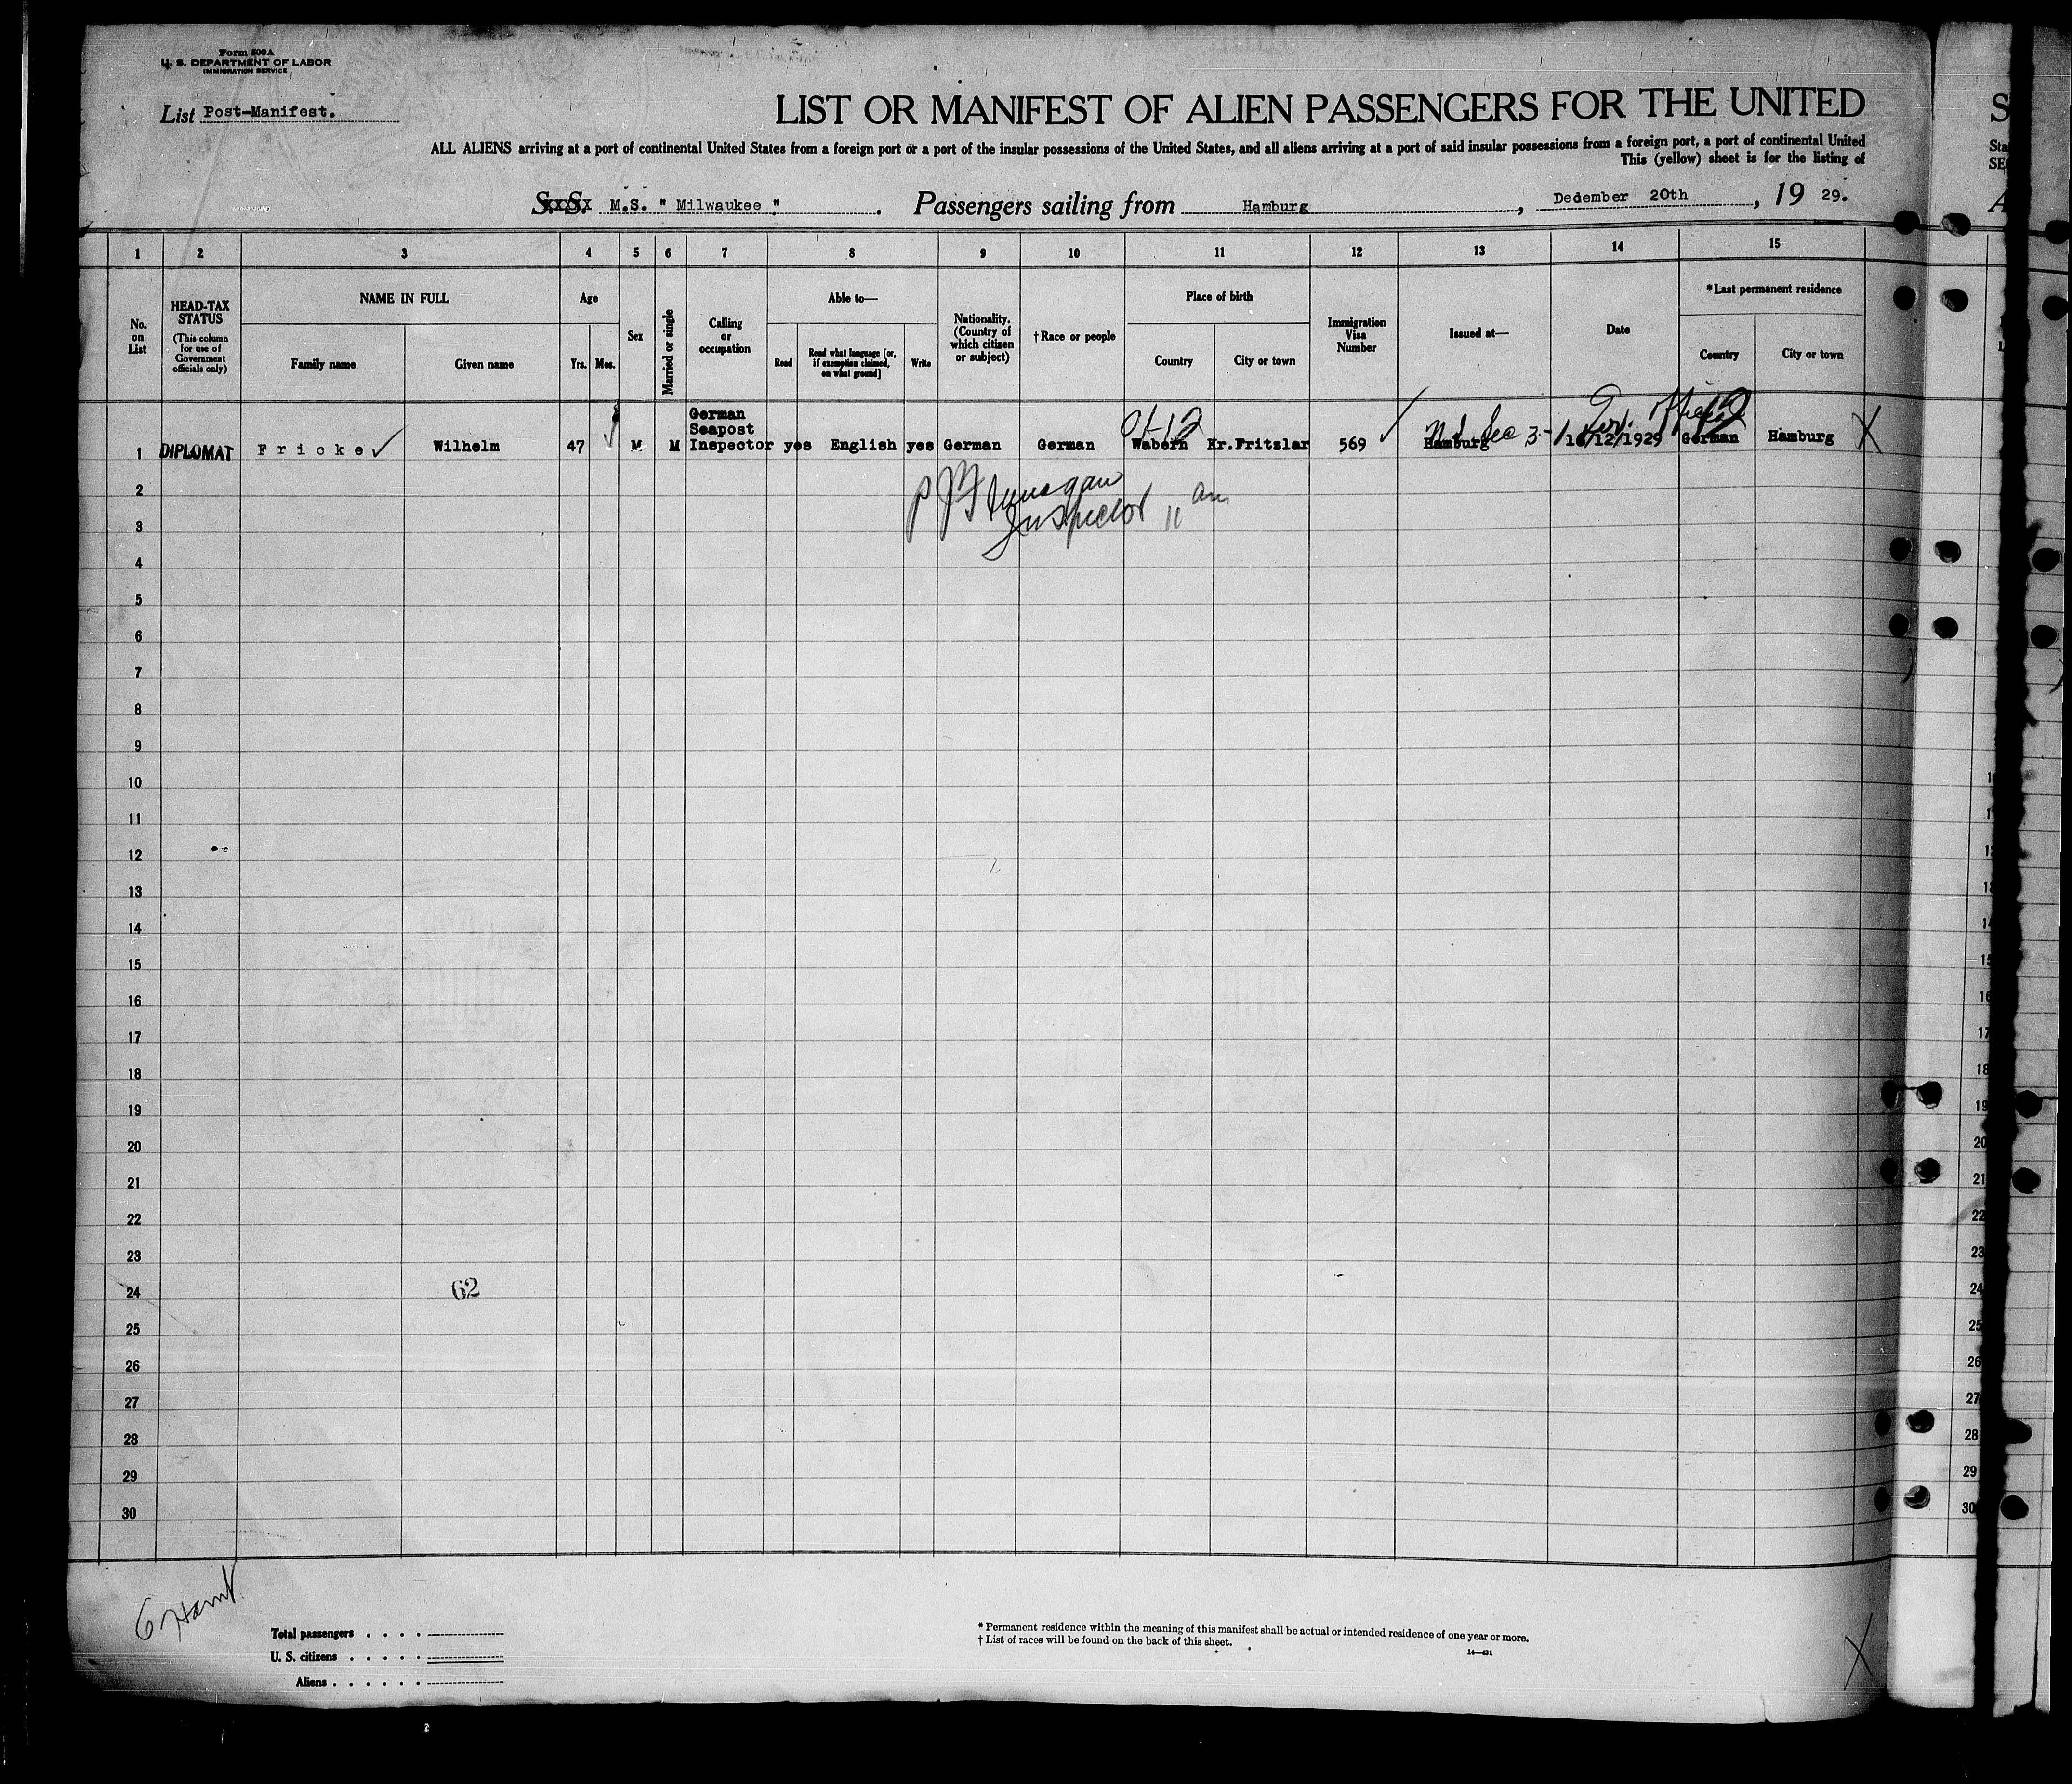 Form 500A
U. S. DEPARTMENT OF LABOR
IMMIGRATION SERVICE
List Post-Manifest.
LIST OR MANIFEST OF ALIEN PASSENGERS FOR THE UNITED
ALL ALIENS arriving at a port of continental United States from a foreign port or a port of the insular possessions of the United States, and all aliens arriving at a port of said insular possessions from a foreign port, a port of continental United
This (yellow) sheet is for the listing of
S. S. M.S. " Milwaukee " . Passengers sailing from Hamburg , Dedember 20th , 19 29.
1 2 3 4 5 6 7 8 9 10 11 12 13 14 15
No. on List
HEAD-TAX STATUS
(This column for use of Government officials only)
NAME IN FULL
Family name Given name
Age
Yrs. Mos.
Sex
Married or single
Calling or occupation
Able to—
Read
Read what language [or, if exemption claimed, on what ground]
Write
Nationality. (Country of which citizen or subject)
†Race or people
Place of birth
Country City or town
Immigration Visa Number
Issued at—
Date
*Last permanent residence
Country City or town
1 DIPLOMAT Fricke Wilhelm 47 M M German Seapost Inspector yes English yes German German Wabern Kr.Fritzlar 569 Hamburg 16/12/1929 German Hamburg X
Inspector
2
3
4
5
6
7
8
9
10
11
12
13
14
15
16
17
18
19
20
21
22
23
24 62
25
26
27
28
29
30
Total passengers . . . .
U. S. citizens . . . . .
Aliens . . . . . .
* Permanent residence within the meaning of this manifest shall be actual or intended residence of one year or more.
† List of races will be found on the back of this sheet.
14—431
X